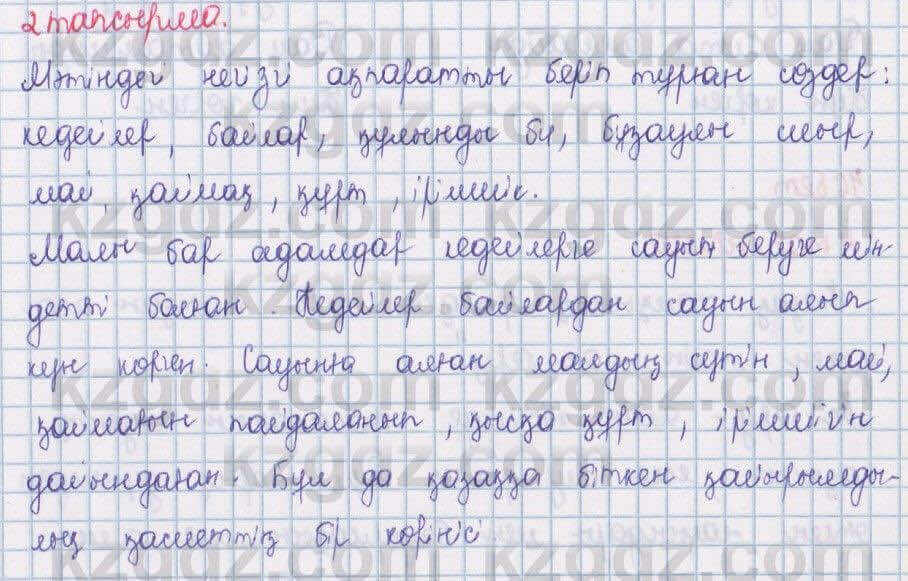 2 тапсырма.
Мәтіндегі негізгі ақпаратты беріп тұрған сөздер:
кедейлер, байлар, құлынды би, бұзаулы сиыр,
май, қаймақ, құрт, ірімшік.
Малы бар адамдар кедейлерге сауын беруге мін-
детті болған. Кедейлер байлардан сауын алып
күн көрген. Сауынға алған малдың сүтін, май,
қаймағын пайдаланып, қысқа құрт, ірімшігін
дайындаған. Бұл да қазаққа біткен қайырымды-
лық қасиеттің бір көрінісі
kzgdz.com